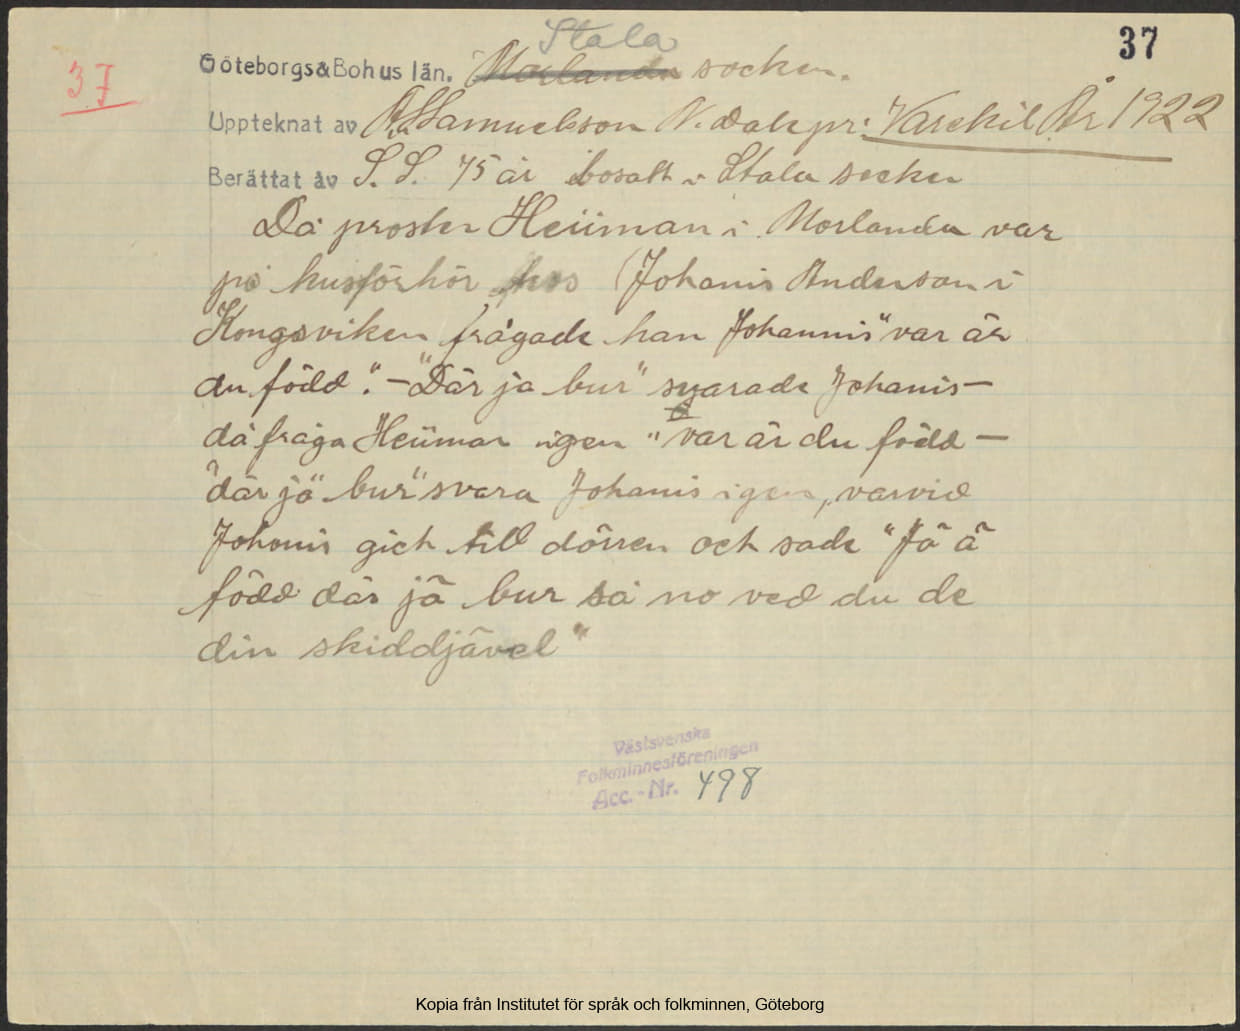 Stala
37
37
Göteborgs & Bohus län. Morlanda socken.
Uppteknat av Samuelson N. Dale pr: Varekil År 1922
Berättat av S. S. 75 år bosatt i Stala socken
Då prosten Heüman i Morlanda var
på husförhör hos (Johanis Anderson i
Kongsviken frågade han Johannis "var är
du född". – "Där ja bur" svarade Johanis –
då fråga Heüman igen "var är du född –
"där jä bur" svara Johanis igen, varvid
Johanis gick till dörren och sade "Jä ä
född där jä bur så no ved du de
din skiddjävel"
Västsvenska
Folkminnesföreningen
Acc.-Nr. 498
Kopia från Institutet för språk och folkminnen, Göteborg